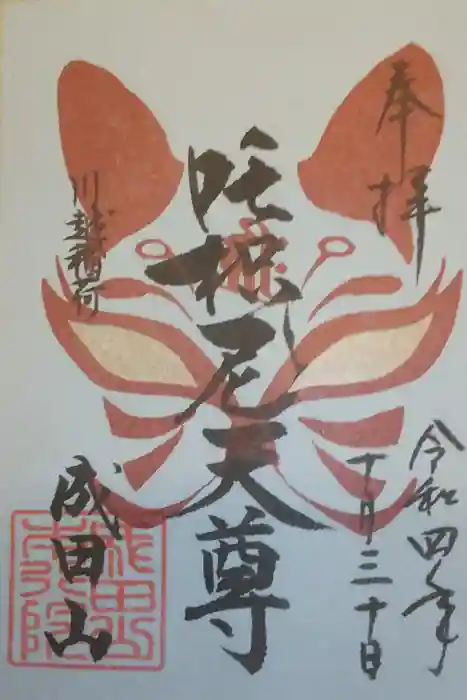 奉拝
令和四年
十月三十日
吒枳尼天尊
川越稲荷
成田山